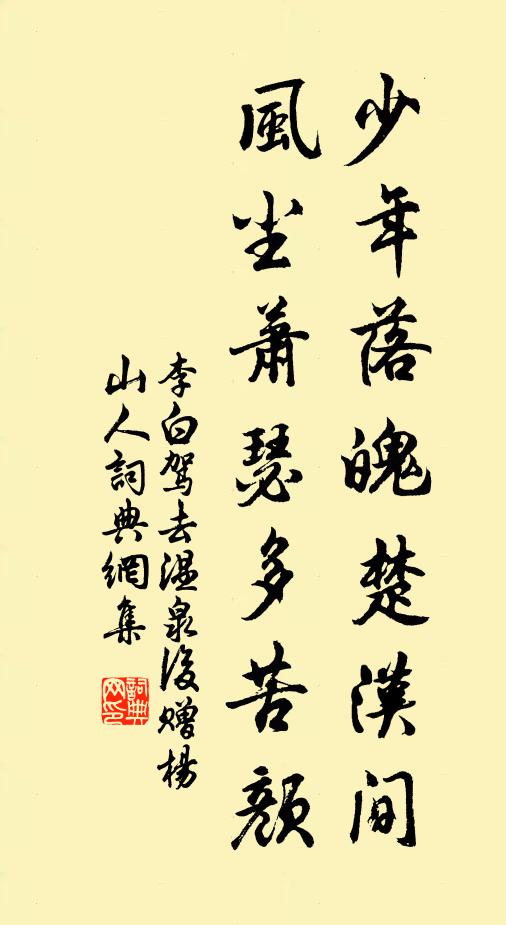 少年落魄楚漢间
風尘蕭瑟多苦顏
李白駕去温泉後赠楊
山人詞典網集
詞典
网印